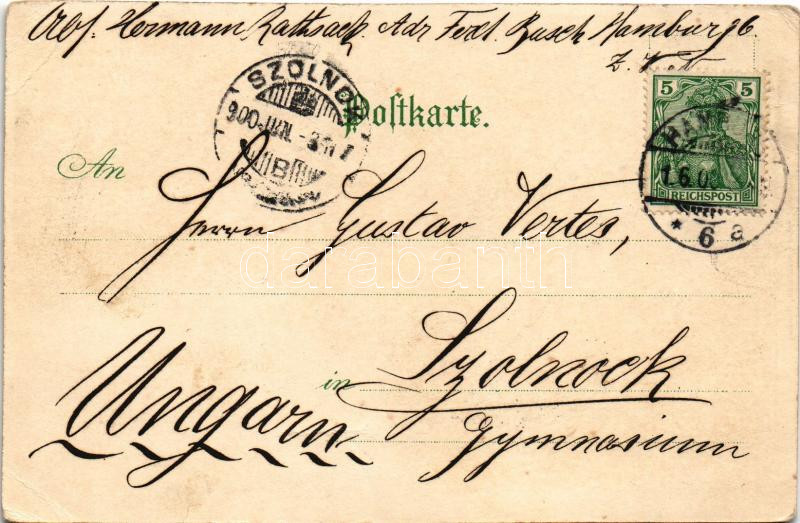 Abs. Hermann Rathsack. Adr Ferd. Busch Hamburg 6.
SZOLNOK
900 JUN. - 3
B
Postkarte.
5 5
REICHSPOST
HAMB
1.6.0
* 6 a
An
Herrn Gustav Vertes,
darabanth
in Szolnock
Ungarn
Gymnasium